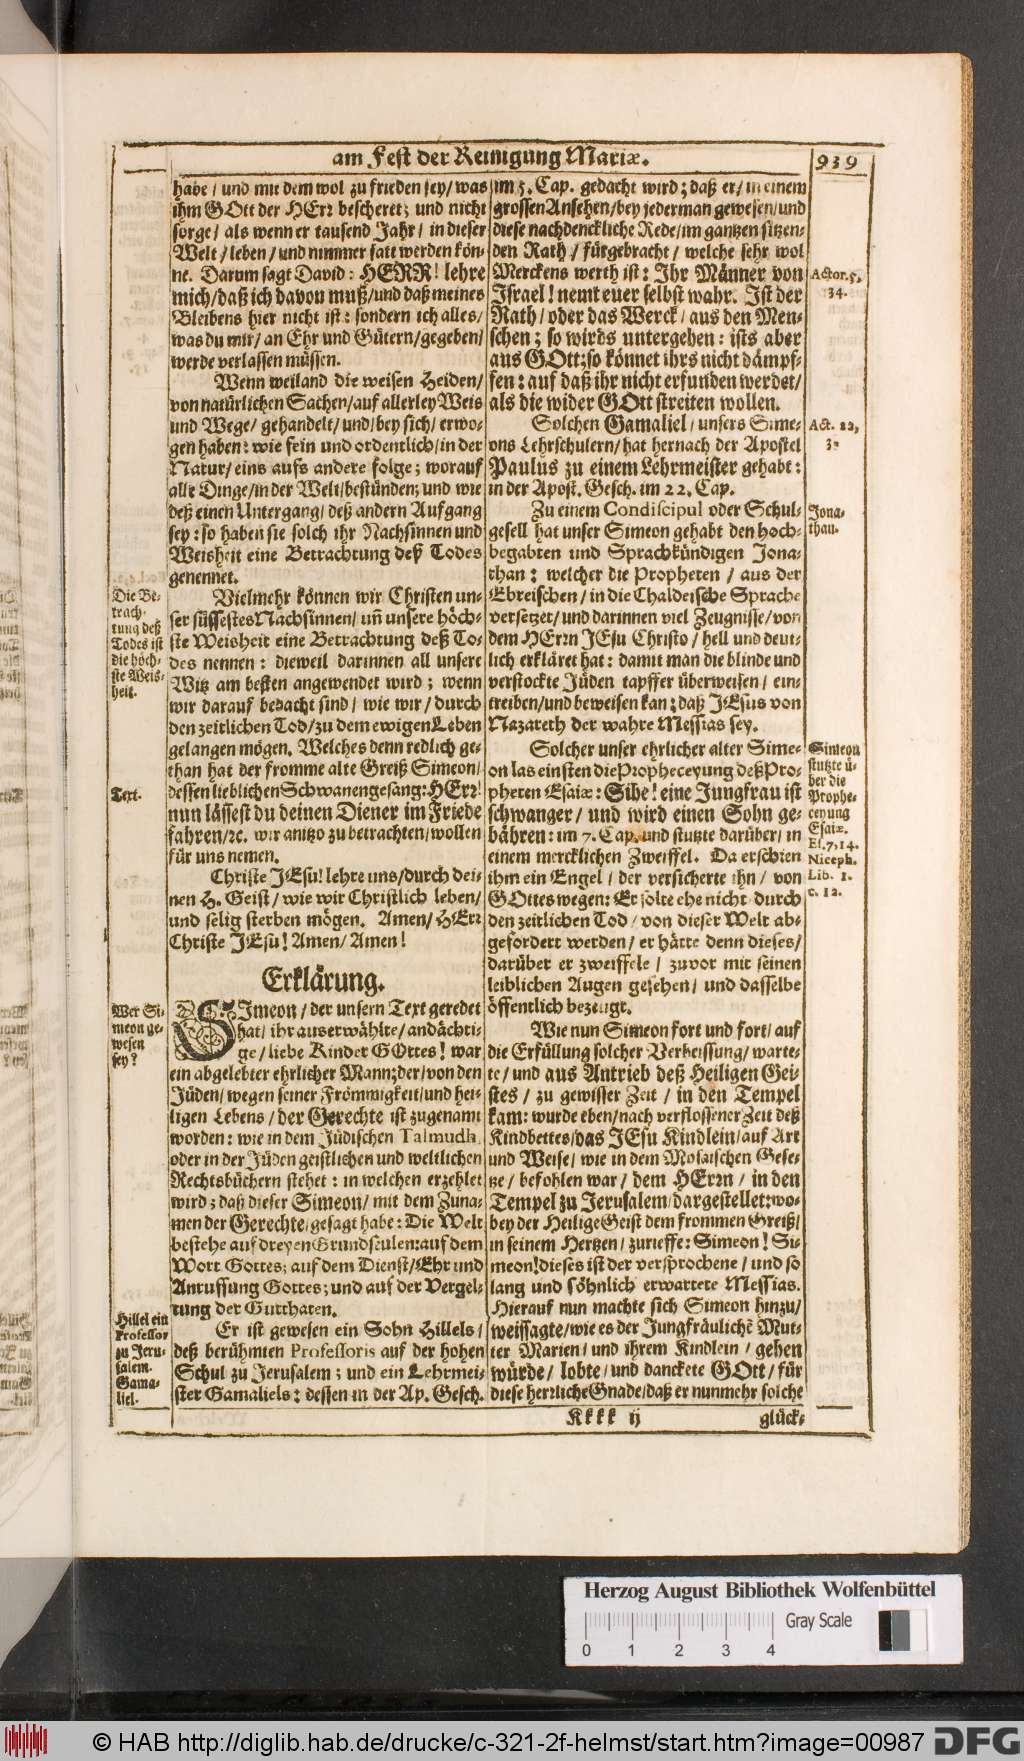 am Fest der Reinigung Mariæ.
939
habe / und mit dem wol zu frieden sey / was
ihm GOtt der HErr bescheret; und nicht
sorge / als wenn er tausend Jahr / in dieser
Welt / leben / und nimmer satt werden kön-
ne. Darum sagt David: HERR! lehre
mich / daß ich davon muß / und daß meines
Bleibens hier nicht ist: sondern ich alles /
was du mir / an Ehr und Gütern / gegeben /
werde verlassen müssen.
Wenn weiland die weisen Heiden /
von natürlichen Sachen / auf allerley Weis
und Wege / gehandelt / und / bey sich / erwo-
gen haben: wie fein und ordentlich / in der
Natur / eins aufs andere folge; worauf
alle Dinge / in der Welt / bestünden; und wie
deß einen Untergang / deß andern Aufgang
sey: so haben sie solch ihr Nachsinnen und
Weisheit eine Betrachtung deß Todes
genennet.
Die Be-
trach-
tung deß
Todes ist
die höch-
ste Weis-
heit.
Vielmehr können wir Christen un-
ser süssestes Nachsinnen / uñ unsere höch-
ste Weisheit eine Betrachtung deß To-
des nennen: dieweil darinnen all unsere
Witz am besten angewendet wird; wenn
wir darauf bedacht sind / wie wir / durch
den zeitlichen Tod / zu dem ewigen Leben
gelangen mögen. Welches denn redlich ge-
than hat der fromme alte Greiß Simeon /
Text.
dessen lieblichen Schwanengesang: HErr!
nun lässest du deinen Diener im Friede
fahren / ꝛc. wir anitzo zu betrachten / wollen
für uns nemen.
Christe JEsu! lehre uns / durch dei-
nen H. Geist / wie wir Christlich leben /
und selig sterben mögen. Amen / HErr
Christe JEsu! Amen / Amen!
Erklärung.
Wer Si-
meon ge-
wesen
sey?
SImeon / der unsern Text geredet
hat / ihr auserwählte / andächti-
ge / liebe Kinder GOttes! war
ein abgelebter ehrlicher Mann; der / von den
Jüden / wegen seiner Frömmigkeit / und hei-
ligen Lebens / der Gerechte ist zugenamt
worden: wie in dem Jüdischen Talmudh,
oder in der Jüden geistlichen und weltlichen
Rechtsbüchern stehet: in welchen erzehlet
wird; daß dieser Simeon / mit dem Zuna-
men der Gerechte / gesagt habe: Die Welt
bestehe auf dreyen Grundseulen: auf dem
Wort Gottes; auf dem Dienst / Ehr und
Anruffung Gottes; und auf der Vergel-
tung der Gutthaten.
Hillel ein
Professor
zu Jeru-
salem.
Gama-
liel.
Er ist gewesen ein Sohn Hillels /
deß berühmten Professoris auf der hohen
Schul zu Jerusalem; und ein Lehrmei-
ster Gamaliels: dessen in der Ap. Gesch.
im 5. Cap. gedacht wird; daß er / in einem
grossen Ansehen / bey jederman gewesen / und
diese nachdenckliche Rede / im gantzen sitzen-
den Rath / fürgebracht / welche sehr wol
Merckens werth ist: Ihr Männer von
Israel! nemt euer selbst wahr. Ist der
Rath / oder das Werck / aus den Men-
schen; so wirds untergehen: ists aber
aus GOtt; so könnet ihrs nicht dämpf-
fen: auf daß ihr nicht erfunden werdet /
als die wider GOtt streiten wollen.
Actor. 5,
34.
Solchen Gamaliel / unsers Sime-
ons Lehrschulern / hat hernach der Apostel
Paulus zu einem Lehrmeister gehabt:
in der Apost. Gesch. im 22. Cap.
Act. 22,
3.
Zu einem Condiscipul oder Schul-
gesell hat unser Simeon gehabt den hoch-
begabten und Sprachkündigen Jona-
than: welcher die Propheten / aus der
Ebreischen / in die Chaldeische Sprache
versetzet / und darinnen viel Zeugnisse / von
dem HErrn JEsu Christo / hell und deut-
lich erkläret hat: damit man die blinde und
verstockte Jüden tapffer überweisen / ein-
treiben / und beweisen kan; daß JEsus von
Nazareth der wahre Messias sey.
Jona-
than.
Solcher unser ehrlicher alter Sime-
on las einsten die Propheceyung deß Pro-
pheten Esaiæ: Sihe! eine Jungfrau ist
schwanger / und wird einen Sohn ge-
bähren: im 7. Cap. und stutzte darüber / in
einem mercklichen Zweiffel. Da erschien
ihm ein Engel / der versicherte ihn / von
GOttes wegen: Er solte ehe nicht durch
den zeitlichen Tod / von dieser Welt ab-
gefordert werden / er hätte denn dieses /
darüber er zweiffele / zuvor mit seinen
leiblichen Augen gesehen / und dasselbe
öffentlich bezeugt.
Simeon
stutzte ü-
ber die
Prophe-
ceyung
Esaiæ.
Es. 7, 14.
Niceph.
Lib. 1.
c. 12.
Wie nun Simeon fort und fort / auf
die Erfüllung solcher Verheissung / warte-
te / und aus Antrieb deß Heiligen Gei-
stes / zu gewisser Zeit / in den Tempel
kam: wurde eben / nach verflossener Zeit deß
Kindbettes / das JEsu Kindlein / auf Art
und Weise / wie in dem Mosaischen Gese-
tze / befohlen war / dem HErrn / in den
Tempel zu Jerusalem / dargestellet: wo-
bey der Heilige Geist dem frommen Greiß /
in seinem Hertzen / zurieffe: Simeon! Si-
meon! dieses ist der versprochene / und so
lang und söhnlich erwartete Messias.
Hierauf nun machte sich Simeon hinzu /
weissagte / wie es der Jungfräulichẽ Mut-
ter Marien / und ihrem Kindlein / gehen
würde / lobte / und danckete GOtt / für
diese herrliche Gnade / daß er nunmehr solche
Kkkk ij
glück-
Herzog August Bibliothek Wolfenbüttel
Gray Scale
0 1 2 3 4
© HAB http://diglib.hab.de/drucke/c-321-2f-helmst/start.htm?image=00987
DFG